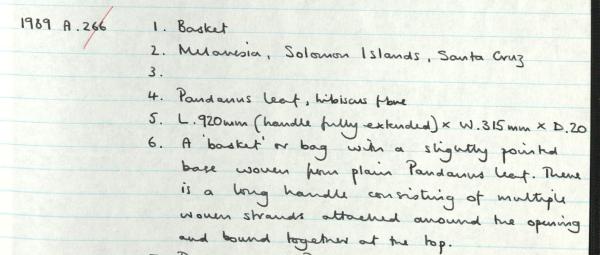 1989 A.266 1. Basket
2. Melanesia, Solomon Islands, Santa Cruz
3.
4. Pandanus leaf, hibiscus fibre
5. L.920mm (handle fully extended) x W.315mm x D.20
6. A 'basket' or bag with a slightly pointed
base woven from plain Pandanus leaf. There
is a long handle consisting of multiple
woven strands attached around the opening
and bound together at the top.